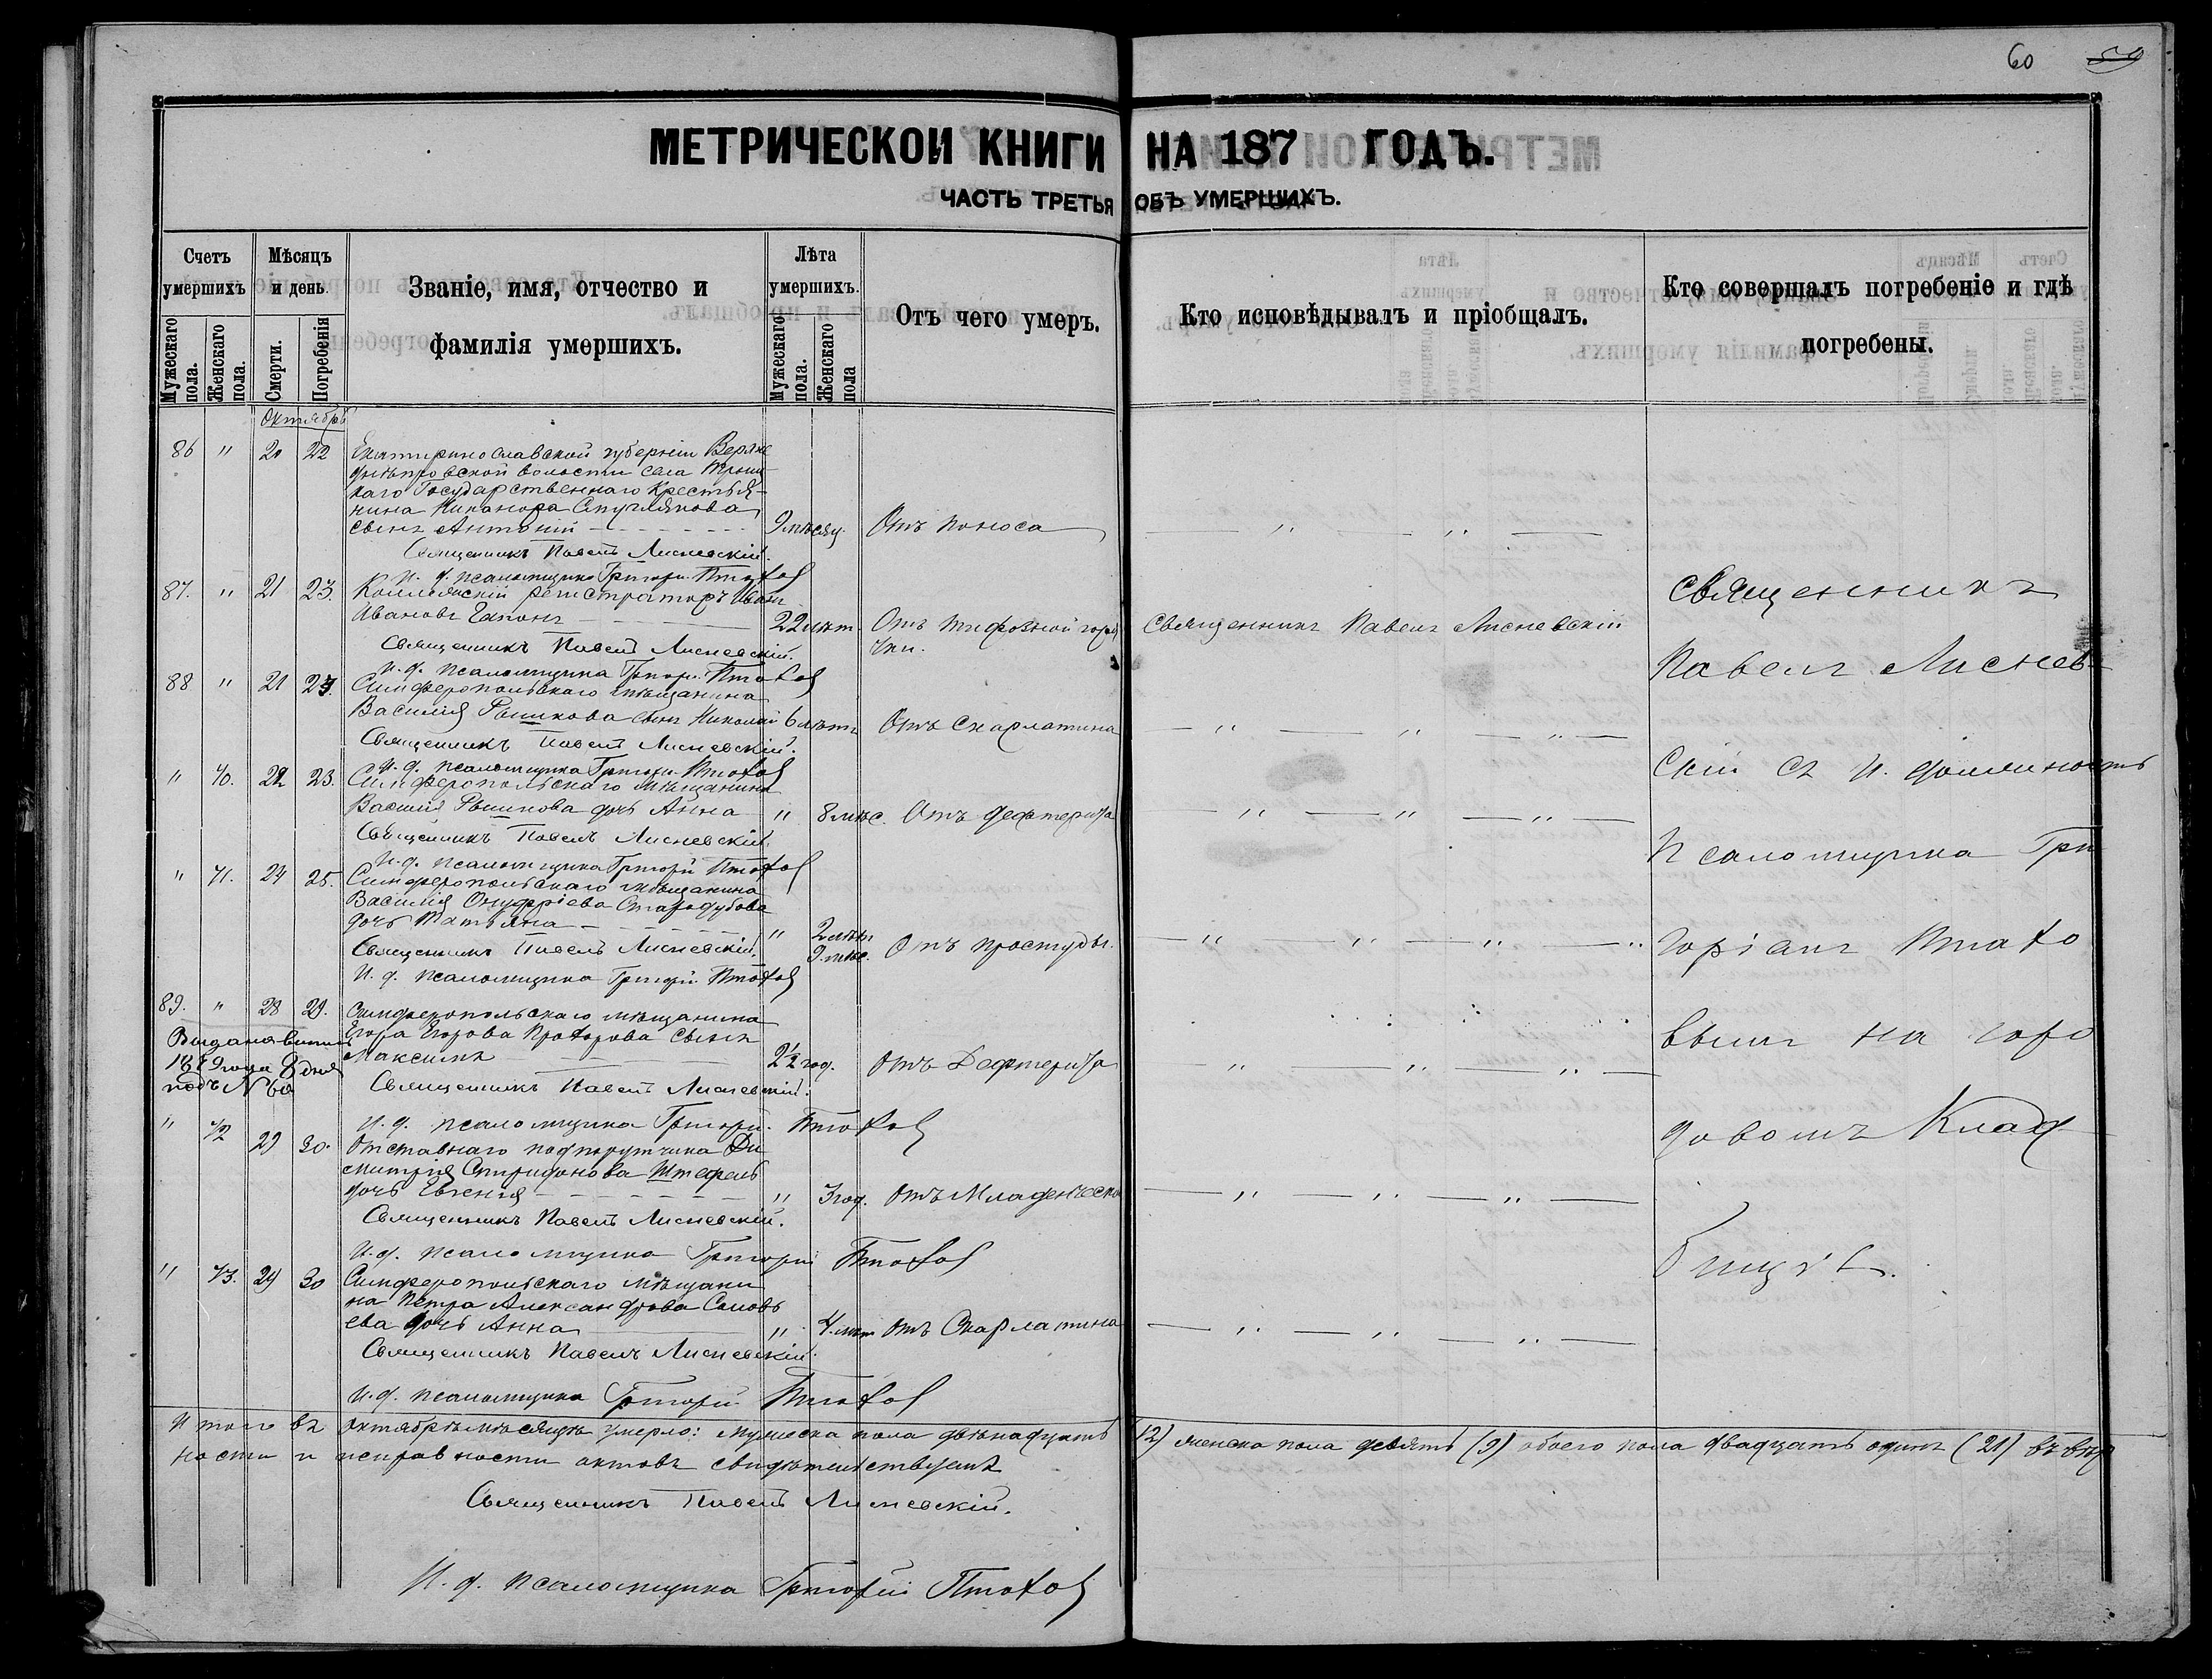 60 59
МЕТРИЧЕСКОЙ КНИГИ НА 187 ГОДЪ.
ЧАСТЬ ТРЕТЬЯ ОБЪ УМЕРШИХЪ.
Счетъ умершихъ
Мѣсяцъ и день.
Званіе, имя, отчество и фамилія умершихъ.
Лѣта умершихъ.
Отъ чего умеръ.
Кто исповѣдывалъ и пріобщалъ.
Кто совершалъ погребеніе и гдѣ погребены.
Мужескаго пола.
Женскаго пола.
Смерти.
Погребенія
Мужескаго пола.
Женскаго пола
Октябрь
86 " 20 22 Екатеринославской губерніи Верхне
днѣпровской волости села
каго Государственнаго Крестья-
нина Никанора
сынъ Антоній 9 мѣсяц. Отъ поноса
Священникъ Павелъ Лисневскій.
И. д. псаломщика Григорій Птахов
87. " 21 23. Коллежскій регистраторъ Иванъ
Ивановъ Гапонъ 22 лѣт. Отъ тифозной горя
чки.
Священникъ Павелъ Лисневскій
Священникъ Павелъ Лисневскій.
И. д. псаломщика Григор. Птахов
88 " 21 23. Симферопольскаго мѣщанина
Василія Рышкова сынъ Николай 6 лѣтъ Отъ Скарлатина
Священникъ Павелъ Лисневскій.
И. д. псаломщика Григорій Птахов
" 40. 22 23. Симферопольскаго мѣщанина
Василія Рышкова дочь Анна " 8 мѣс. Отъ дефтерита
Священникъ Павелъ Лисневскій.
И. д. псаломщика Григорій Птахов
" 41. 24 25. Симферопольскаго мѣщанина
Василія Онуфріева Стародубова
дочь Татьяна " 2 лѣт. 9. мѣс. Отъ простуды.
Священникъ Павелъ Лисневскій.
И. д. псаломщика Григорій Птахов
89. " 28 29. Симферопольскаго мѣщанина
Егора Егорова Прохорова сынъ
Максимъ 2½ год. Отъ Дефтерита
Священникъ Павелъ Лисневскій.
Выдана
1879 года 8 дня
подъ №
И. д. псаломщика Григорій Птахов
" 42 29 30. Отставнаго подпоручика Ди
митрія Спиридонова Штефель
дочь Евгенія " 3 год. Отъ Младенческо
Священникъ Павелъ Лисневскій.
И. д. псаломщика Григорій Птахов
" 43. 29 30 Симферопольскаго мѣщани
на Петра Александрова Соловь
ева дочь Анна " 4. лѣт Отъ Скарлатина
Священникъ Павелъ Лисневскій.
И. д. псаломщика Григорій Птахов
Священникъ
Павелъ Лиснев-
скій съ и. должность
Псаломщика Гри
горіемъ Птахо
вымъ на горо
довомъ Клад-
бищѣ.
Итого въ Октябрѣ мѣсяцѣ умерло: мужеска пола двѣнадцать (12) женска пола девять (9) обоего пола двадцать одинъ (21) въ вѣр
ности и исправности актовъ свидѣтельствуемъ
Священникъ Павелъ Лисневскій.
И. д. псаломщика Григорій Птахов